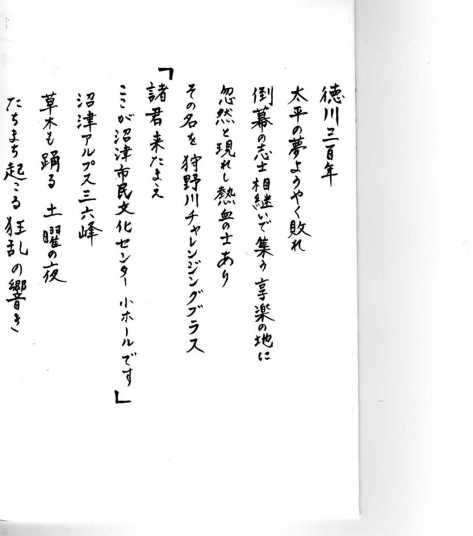 徳川三百年
太平の夢ようやく敗れ
倒幕の志士相継いで集う享楽の地に
忽然と現れし熱血の士あり
その名を狩野川チャレンジングブラス
「諸君来たまえ
ここが沼津市民文化センター小ホールです」
沼津アルプス三六峰
草木も踊る土曜の夜
たちまち起こる狂乱の響き